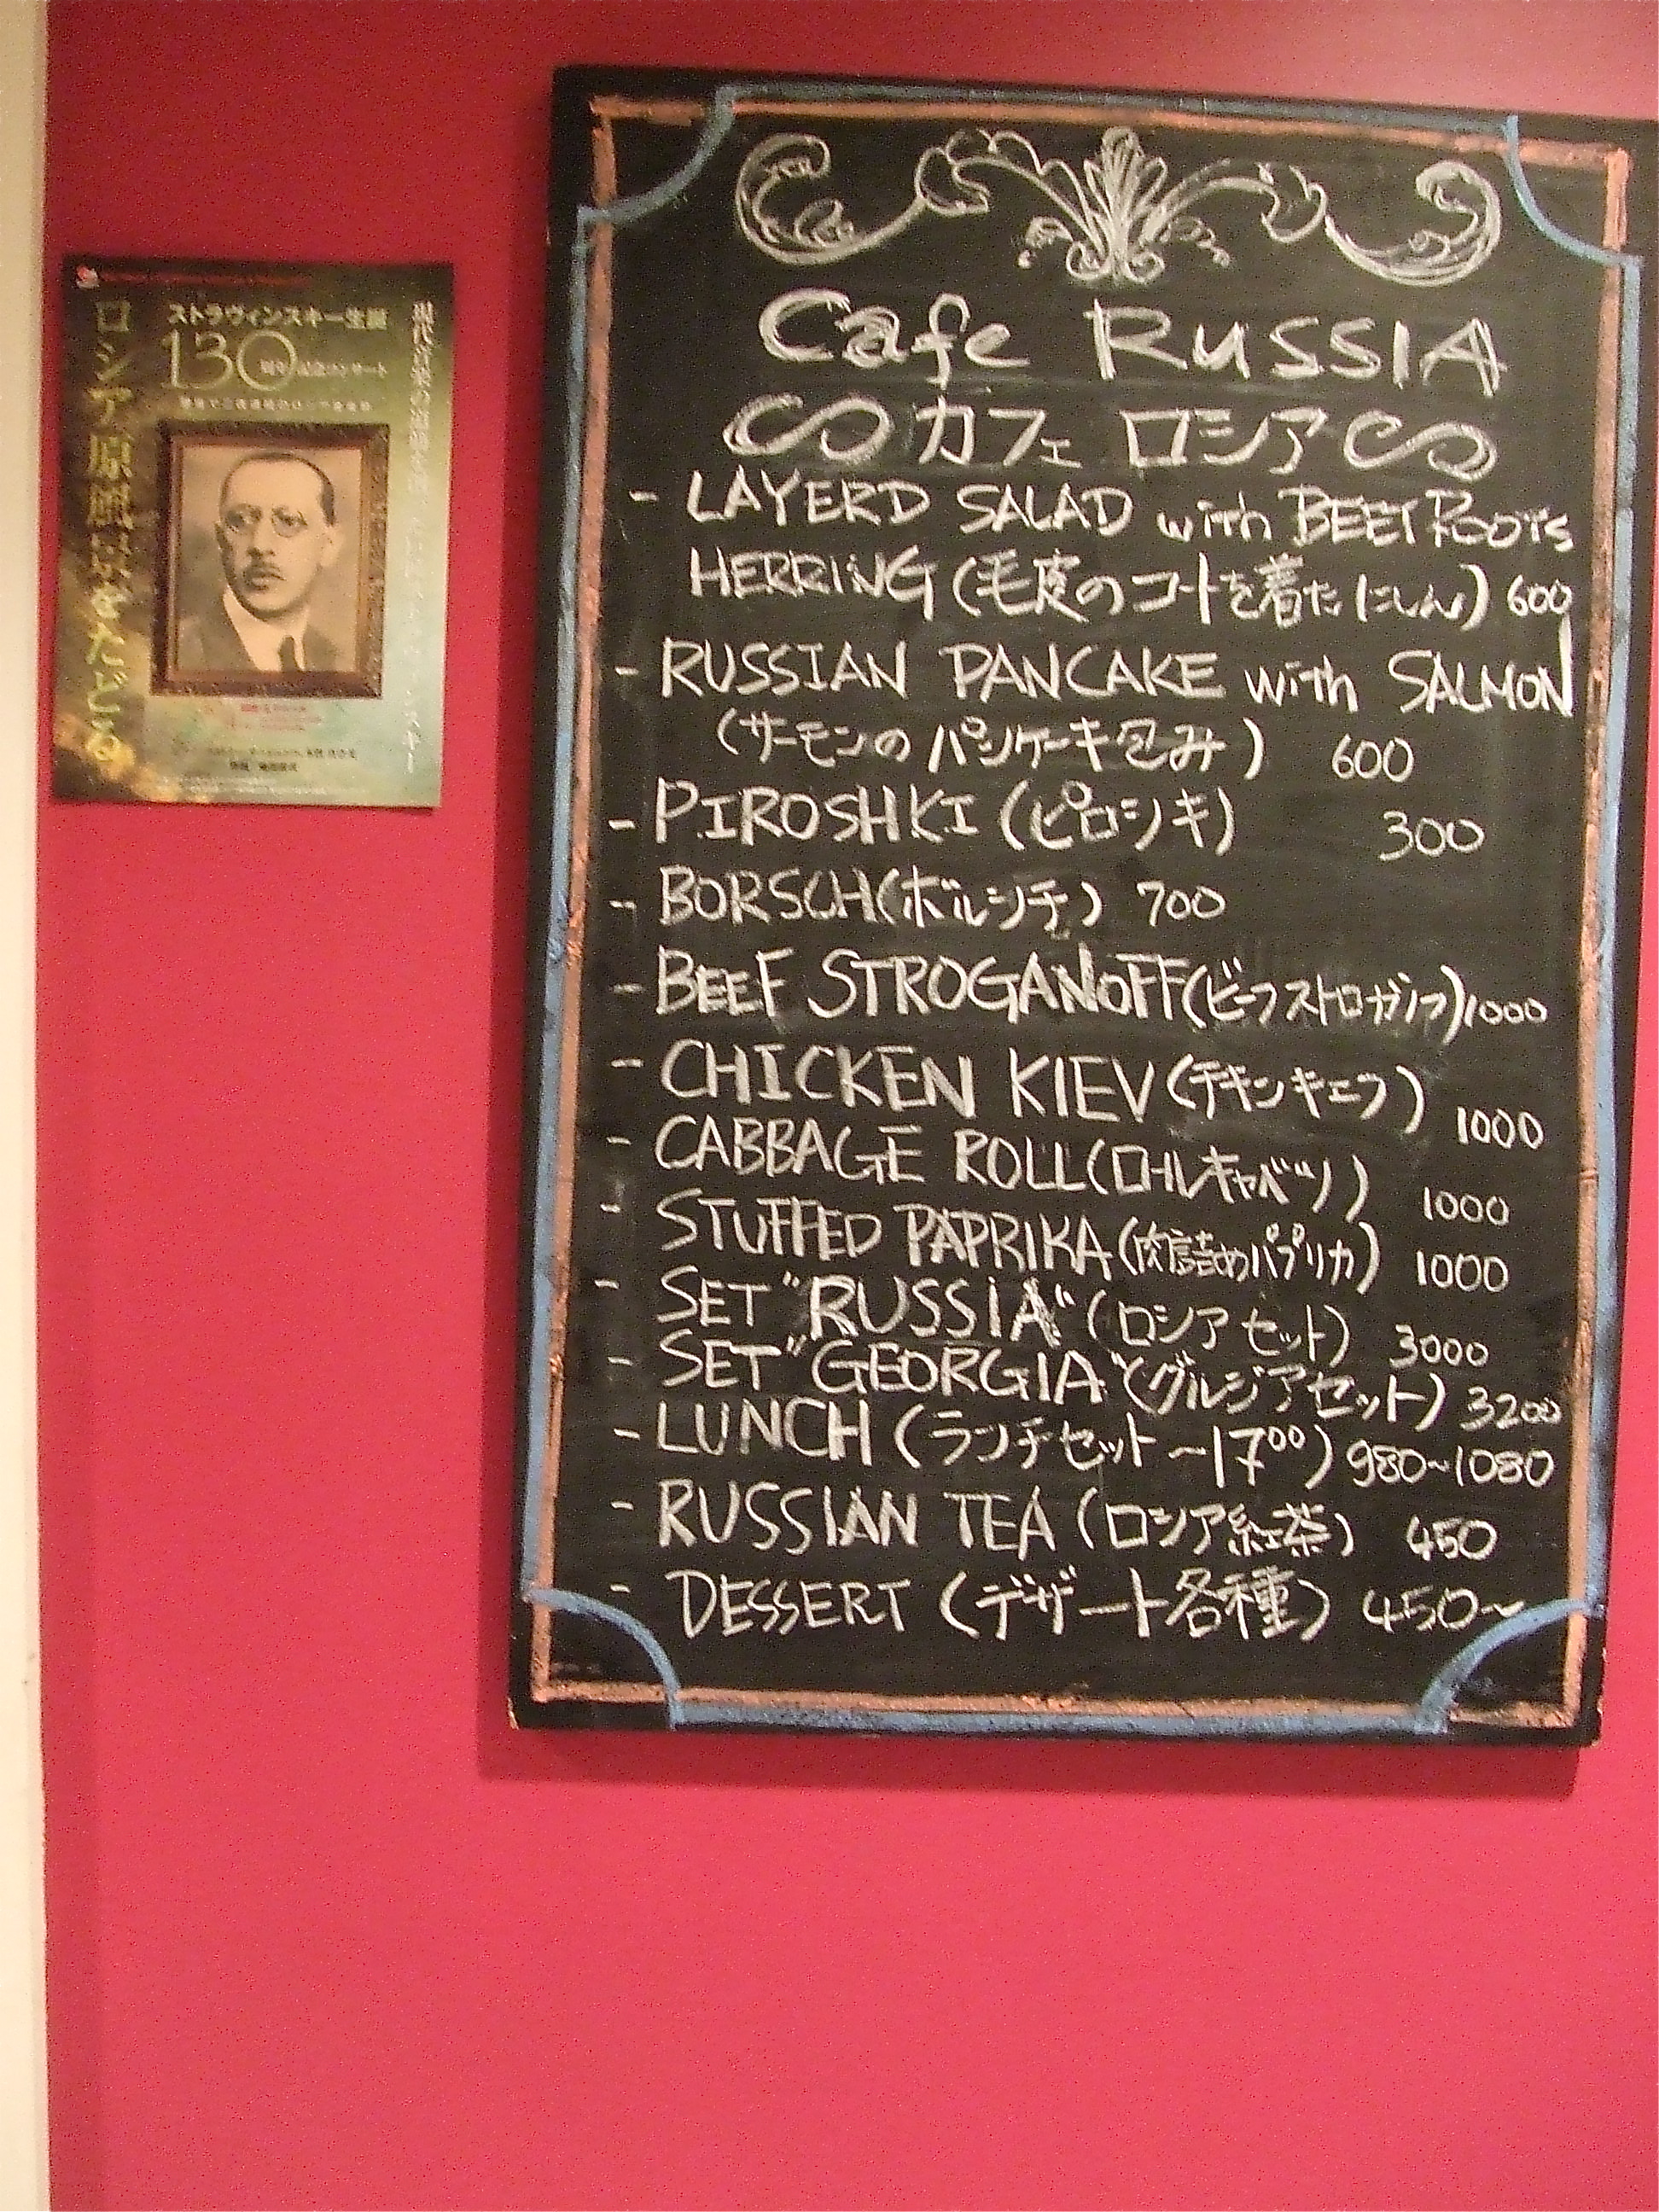 ストラヴィンスキー生誕
130
周年記念コンサート
ロシア原風景をたどる
Cafe RUSSIA
カフェ ロシア
- LAYERD SALAD with BEETROOTS
HERRING (毛皮のコートを着たにしん) 600
- RUSSIAN PANCAKE with SALMON
(サーモンのパンケーキ包み) 600
- PIROSHKI (ピロシキ) 300
- BORSCH (ボルシチ) 700
- BEEF STROGANOFF (ビーフストロガノフ) 1000
- CHICKEN KIEV (チキンキエフ) 1000
- CABBAGE ROLL (ロールキャベツ) 1000
- STUFFED PAPRIKA (肉詰めパプリカ) 1000
- SET "RUSSIA" (ロシアセット) 3000
- SET "GEORGIA" (グルジアセット) 3200
- LUNCH (ランチセット ~17:00) 980~1080
- RUSSIAN TEA (ロシア紅茶) 450
- DESSERT (デザート各種) 450~